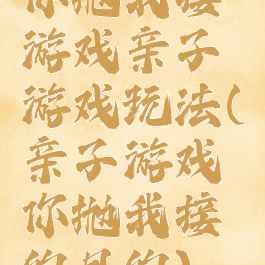 你抛我接
游戏亲子
游戏玩法(
亲子游戏
你抛我接